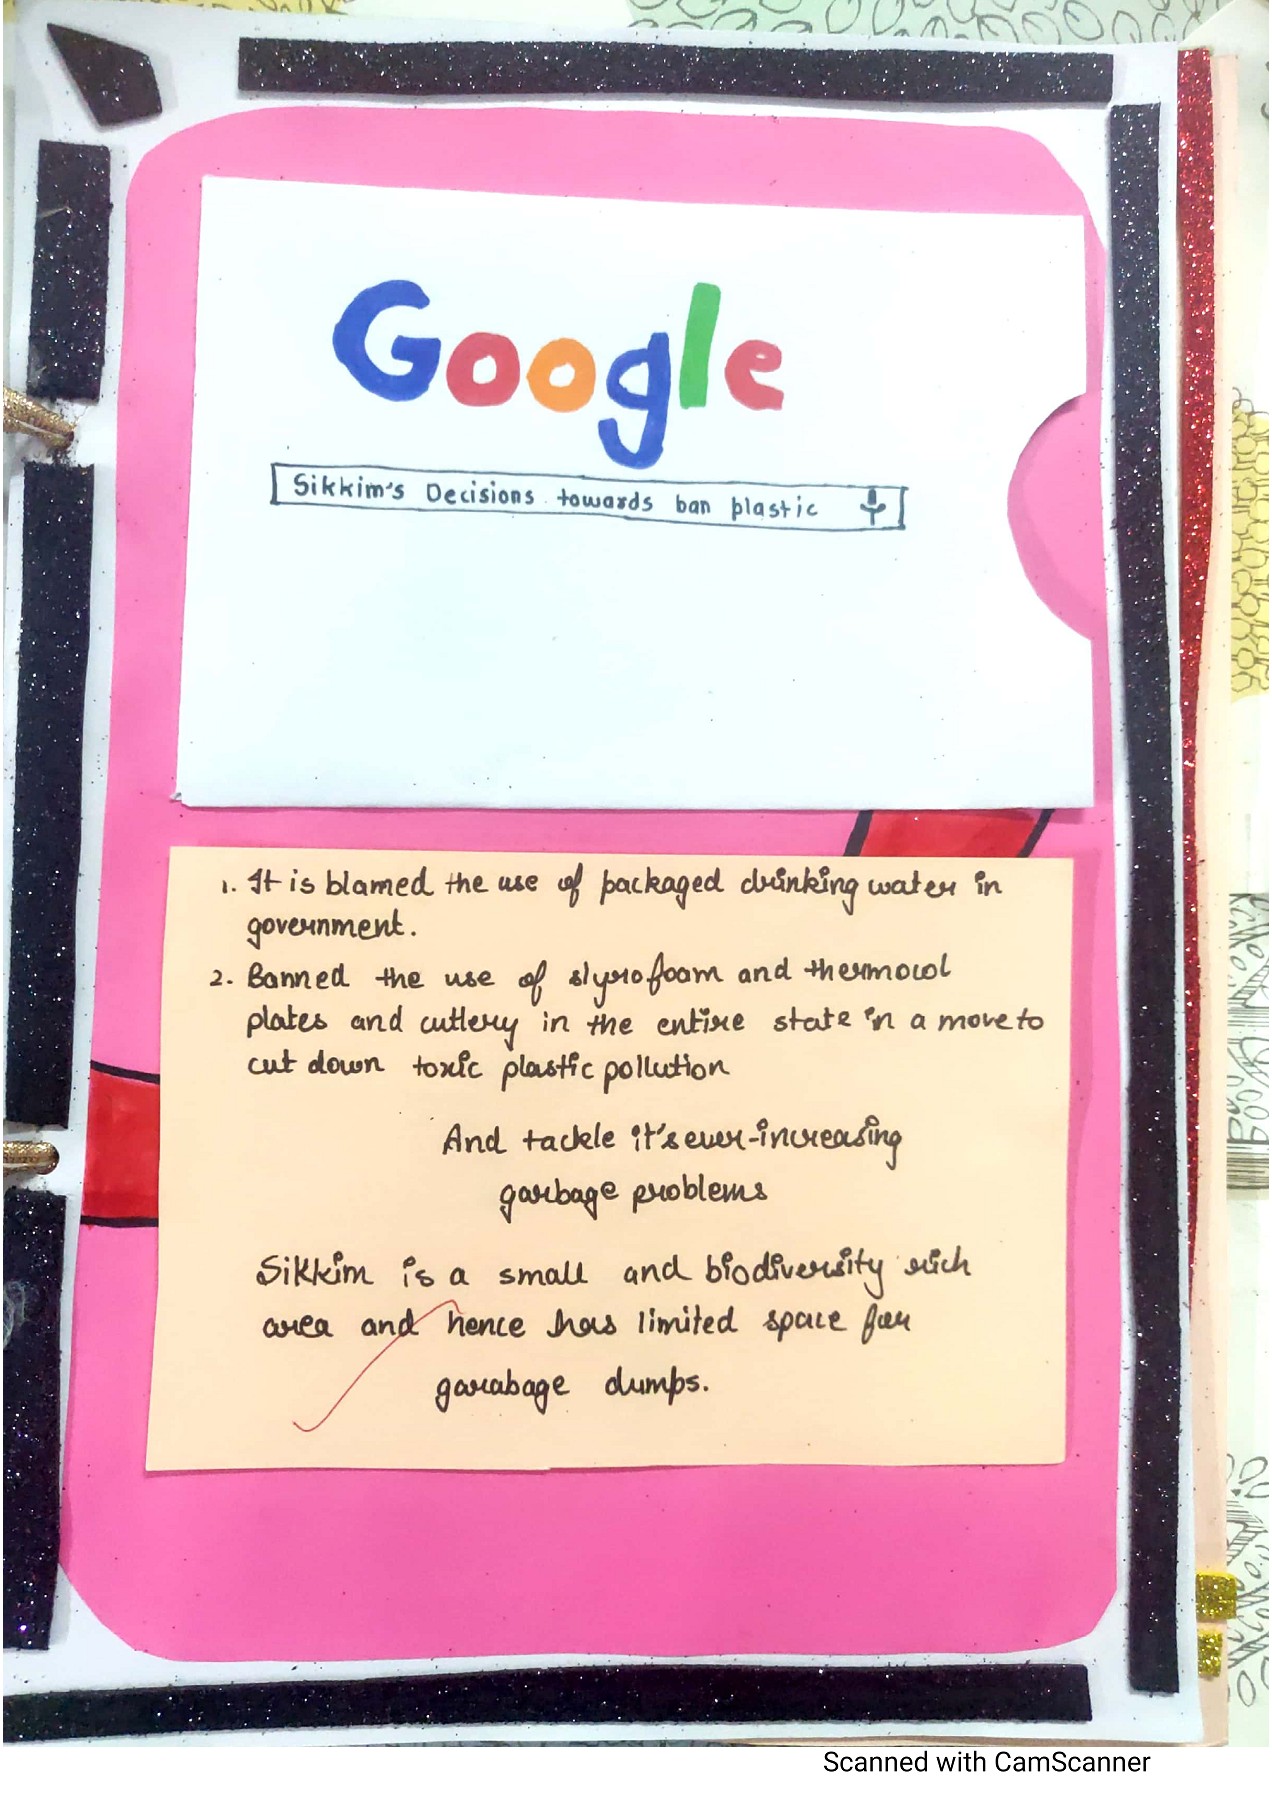 Google
Sikkim's Decisions towards ban plastic
1. It is blamed the use of packaged drinking water in
government.
2. Banned the use of slyrofoam and thermocol
plates and cutlery in the entire state in a move to
cut down toxic plastic pollution
And tackle it's ever-increasing
garbage problems
Sikkim is a small and biodiversity rich
area and hence has limited space for
garabage dumps.
Scanned with CamScanner